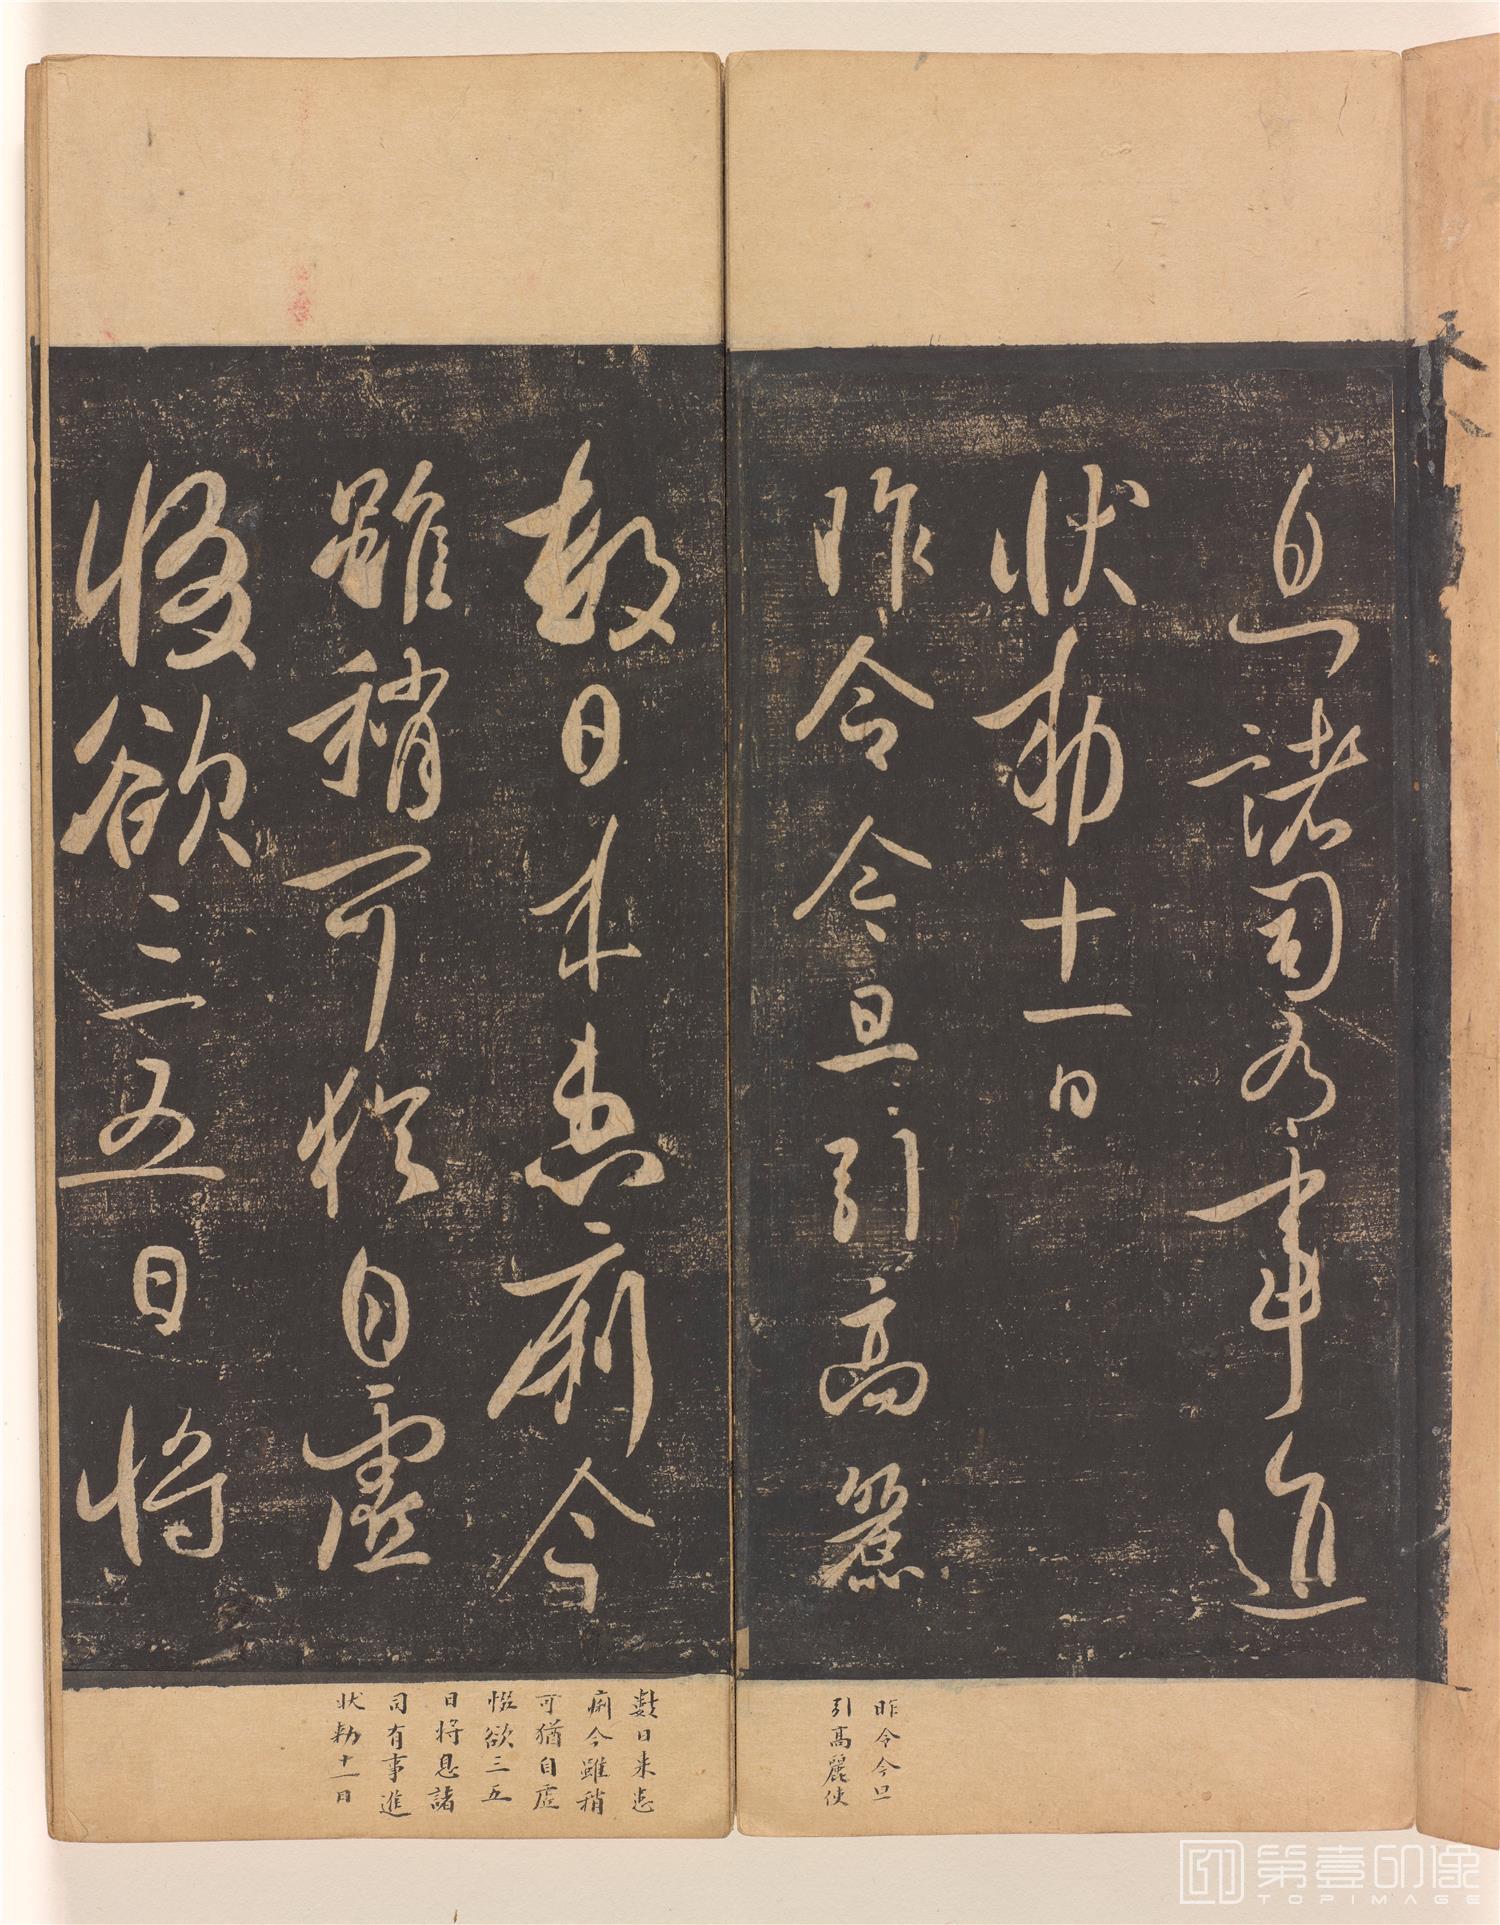 息諸司有事進
狀勅十一日
昨令今旦引高麗
數日來患痢今
雖稍可猶自虛
惙欲三五日將
昨令今旦
引高麗使
數日来患
痢今雖稍
可猶自虛
惙欲三五
日將息諸
司有事進
狀勅十一日
第壹印像
TOPIMAGE